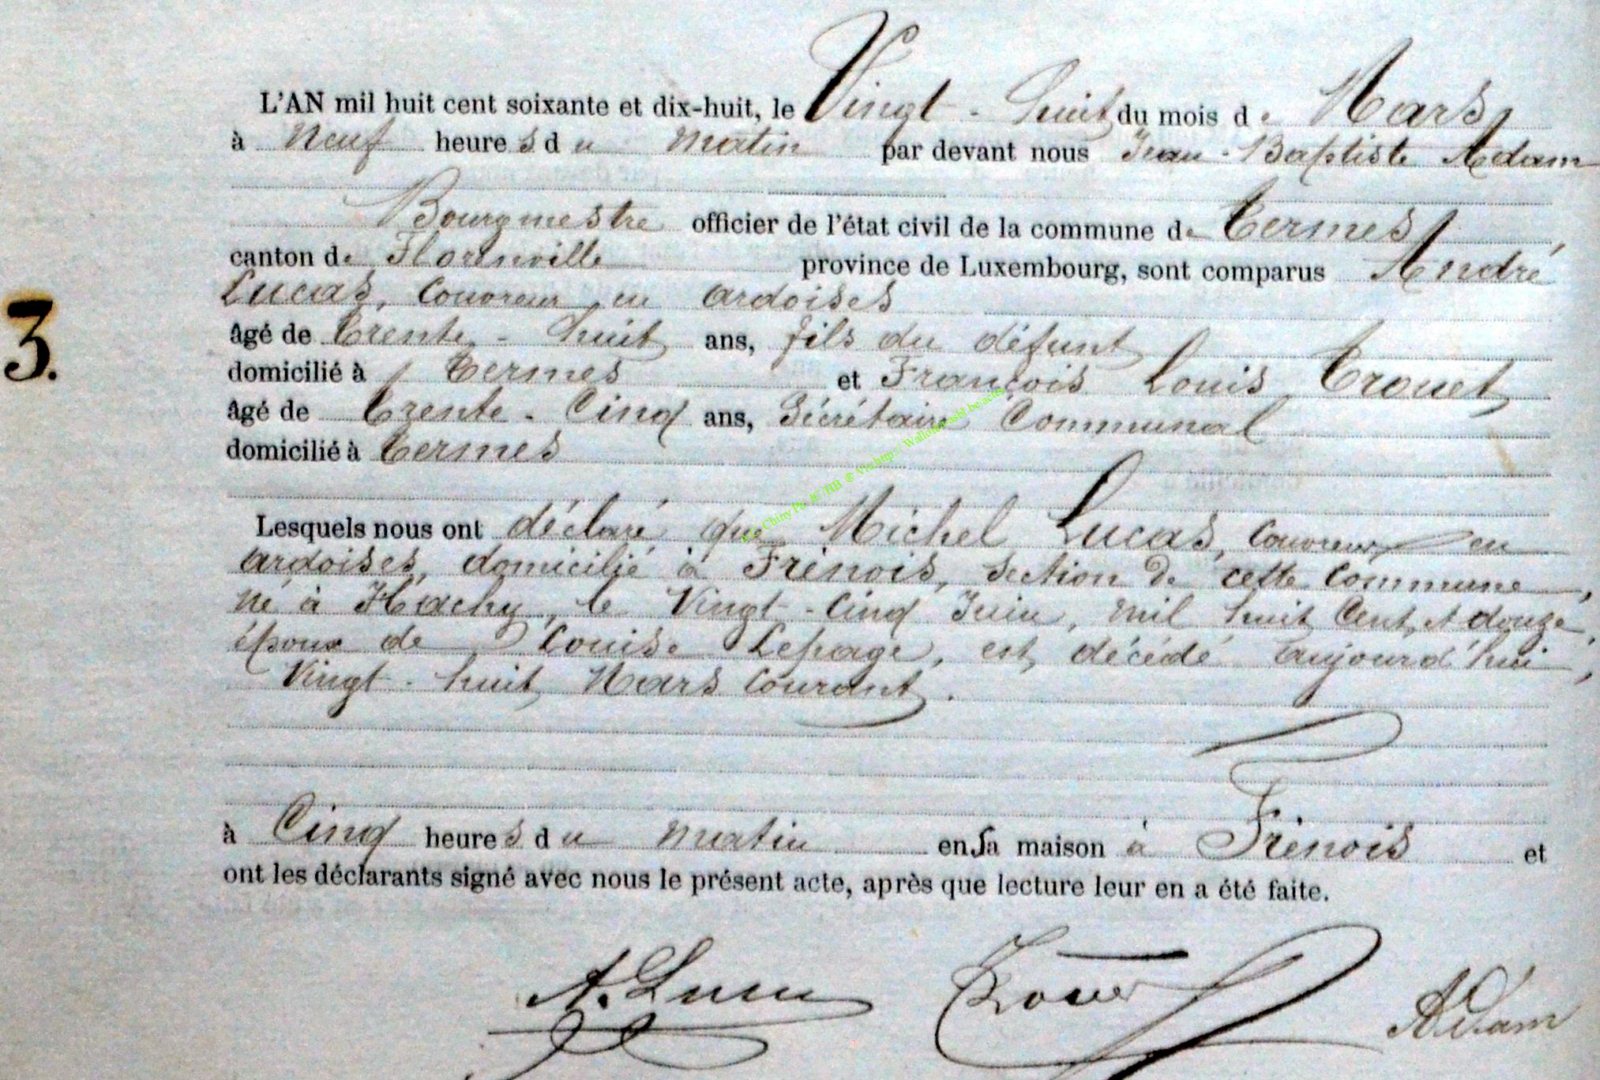 L'AN mil huit cent soixante et dix-huit, le Vingt-huit du mois de Mars
à Neuf heures du matin par devant nous Jean-Baptiste Adam
Bourgmestre officier de l'état civil de la commune de Termes
canton de Florenville province de Luxembourg, sont comparus André
Lucas, Couvreur en ardoises
âgé de trente-huit ans, fils du défunt
3.
domicilié à Termes et François Louis Trouet
âgé de trente-Cinq ans, Sécrétaire Communal
domicilié à Termes
Lesquels nous ont déclaré que Michel Lucas, Couvreur en
ardoises, domicilié à Frénois, section de cette Commune,
né à Hachy, le Vingt-Cinq Juin, mil huit Cent et douze,
époux de Louise Lepage, est décédé aujourd'hui,
Vingt-huit Mars Courant.
à Cinq heures du matin en sa maison à Frénois et
ont les déclarants signé avec nous le présent acte, après que lecture leur en a été faite.
A. Lucas Trouet Adam